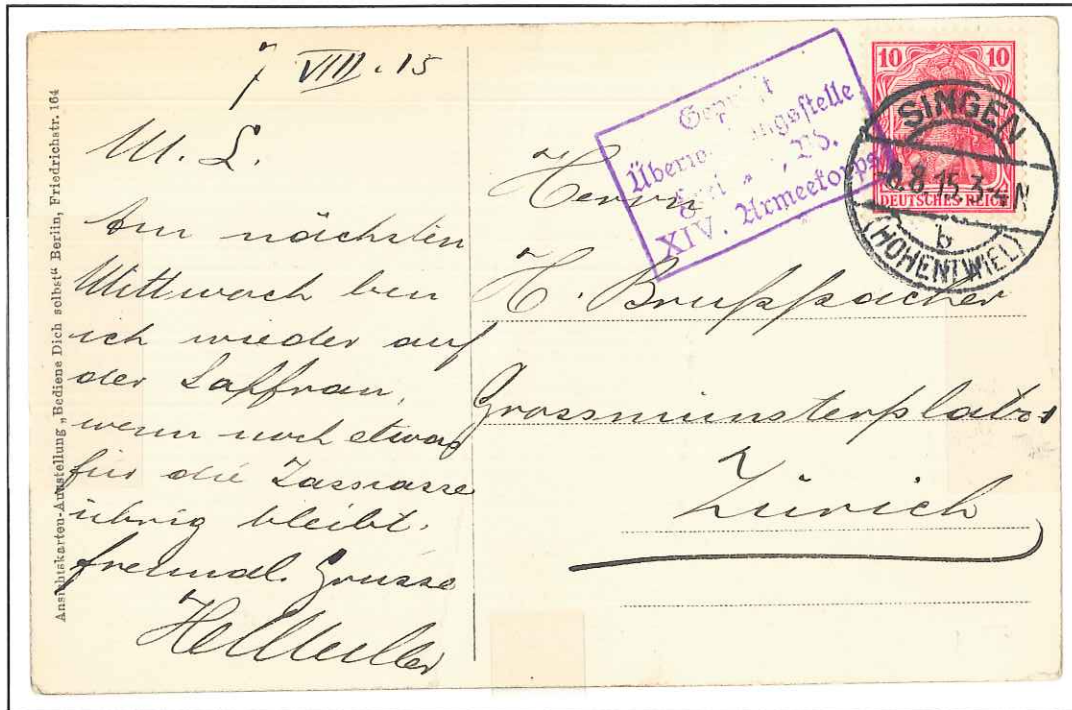 Ansichtskarten-Ausstellung „Bediene Dich selbst“ Berlin, Friedrichstr. 164
7 VIII. 15
M. L.
Am nächsten
Mittwoch bin
ich wieder auf
der Saffran,
wenn noch etwas
für die
übrig bleibt.
freundl. Grüsse
Gepr
Überw ngsstelle
XIV. Armeekorps
10 10
DEUTSCHES REICH
SINGEN
8.8.15.3-4N
b
(HOHENTWIEL)
Herrn
H.
Grossmünsterplatz 1
Zürich